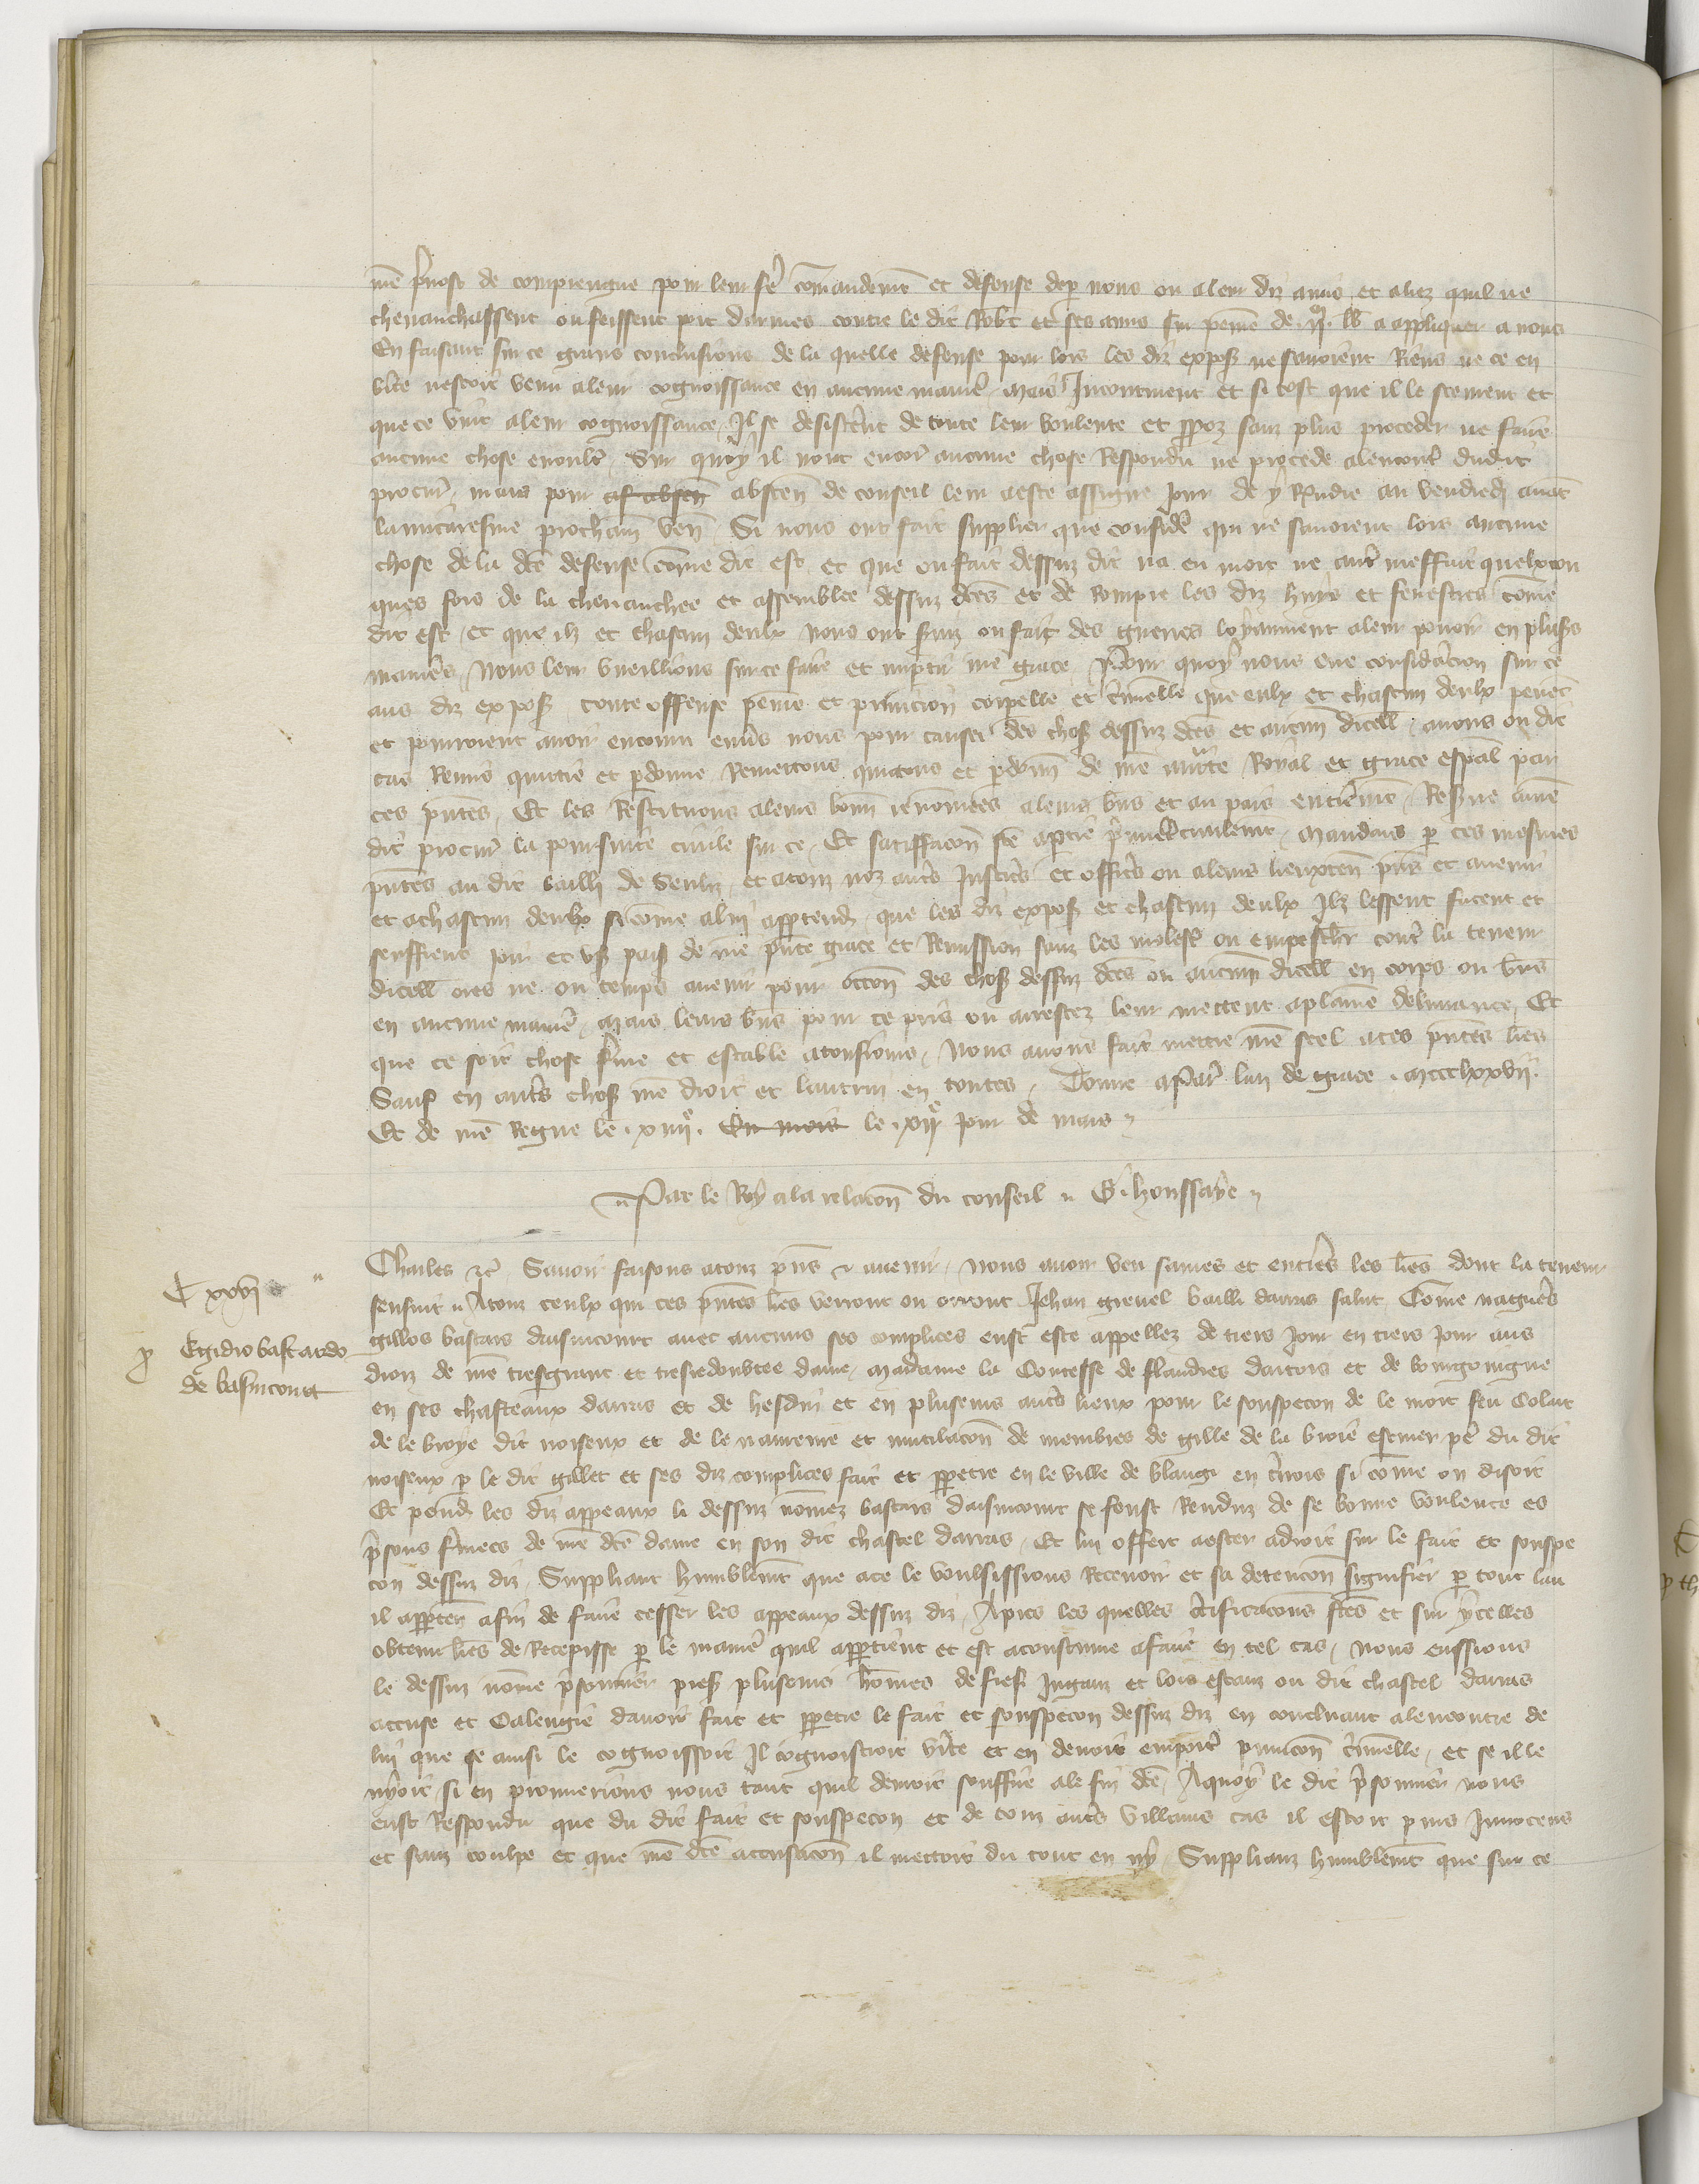 nre prevost de compiengne pour leur fe comandemt et defense dep nous ou a leur diz amis et aliez quil ne
chevauchassent ou feissent port darmes contre le dit Robt et ses amis sur peine de lb a appliquer a nous
En faisant sur ce grans conclusions de la quelle defense pour lors les diz expos ne savoient Riens ne ce en
vite nestoit venu a leur cognoissance en aucune manie mais Incontinent et si tost que il le sceurent et
que ce vint a leur cognoissance Il se desisterent de toute leur voulente et ppoz sanz plus proceder ne faire
aucune chose en oult Sur quoy il nont encor aucune chose Respondu ne procede alencont dudit
procur mais pour absten de conseil leur a este assigne Jour de y Rndre au vendredi avat
la micaresme prochain ven Si nous ont fait supplier que conside qui ne savoient lors aucune
chose de la dte defense come dit est et que ou fait dessuz dit na eu mort ne aut meffait quelxcon
ques fors de la chevauchee et assemblee dessuz dtes et de Rompre les diz huys et fenestres come
dit est et que ilz et chascun deulx nous ont suiz ou fait des guerres loyaument a leur povoir en plusrs
manies Nous leur vueillions sur ce faire et imptir nre grace Pour quoy nous eue consideracion sur ce
aus diz expos toute offense peine et punicion corpelle et criminelle que eulx et chascun deulx pevet
et pourroient avoir encouru envs nous pour cause des chos dessuz dtes et aucun dicell avons ou dit
cas Remis quittie et pdonne Remettons quittons et pdonn de nre auctte Royal et grace espal par
ces pntes Et les Restituons a leurs bonn renomees a leurs bns et au pais entierent Reserve a nre
dit procur la poursuite civile sur ce Et satiffacon fte a ptie civilemt Mandans p ces mesmes
pntes au dit bailli de Senliz et a touz noz autres Justic et offic ou a leurs lieuxten pns et avenir
et a chascun deulx si come a lui apptend que les diz expos et chascun deulx Ilz lessent facent et
seuffrent Joir et us pais de nre pnte grace et Remission sanz les molest ou empesch cont la teneur
dicell ores ne ou temps avenir pour occon des chos dessuz dtes ou aucun dicell en corps ou bns
en aucune manie mais leurs bns pour ce pris ou arrestez leur mettent a plaine delivrance Et
que ce soit chose ferme et estable a tousjours Nous avons fait mettre nre scel a ces pntes lres
Sauf en autres chos nre droit et lautrui en toutes Donne a Par lan de grace mccclxxvii
Et de nre Regne le xiiii En mois le xii Jour de mars
Par le Roy a la relacon du conseil G. houssaye
Charles etc Savoir faisons a touz pns et avenir Nous avoir veu saines et entieres les lres dont la teneur
C xxvi
sensuit A touz ceulx qui ces pntes lres verront ou orront Jehan grevel bailli darras salut Come nagueres
p Egidio bastardo
de basincourt
gillos bastars dasincourt avec aucuns ses complices eust este appellez de tiers Jour en tiers Jour aus
dion de nre tresgrant et tresredoubtee dame Madame la Contesse de flandres dartois et de bourgoingne
en ses chasteaux darras et de hesdin et en plusieurs autres lieux pour le souspecon de le mort feu Colart
de le broye dit noiseux et de le navreure et mutilacon de membres de gille de la broie escuier pe du dit
noiseux p le dit gillet et ses diz complices fait et ppetre en le ville de blangi en tnois si come on disoit
Et pend les diz appeaux li dessuz nomez bastars dasincourt se feust Renduz de se bonne voulente es
psons fmees de nre dte dame en son dit chastel darras Et lui offert a ester a droit sur le fait et souspe
con dessuz diz Suppliant humblemt que a ce le voulsissions Recevoir et sa detencon signifier p tout lau
il apparten afin de faire cesser les appeaux dessuz diz Apres les quelles certificacons ftes et sur ycelles
obtenu lres de Recepisse p le manie quil appartient et est acoustume a faire en tel cas Nous eussions
le dessuz nome psonnier pres plusieurs homes de fief Jugans et lois estans ou dit chastel darras
accuse et Calengie davoir fait et ppetre le fait et souspecon dessuz diz en concluant alencontre de
lui que se ainsi le cognoissoit Il cognoistroit vite et en devoit emport punicon criminelle et se il le
nyoit si en prouverions nous tant quil devroit souffire a le fin dte A quoy le dit psonnier nous
eust Respondu que du dit fait et souspecon et de touz autres villains cas il estoit purs Innocens
et sanz coulpe et que nre dte accusacon il mettoit du tout en ny Supplianz humblemt que sur ce